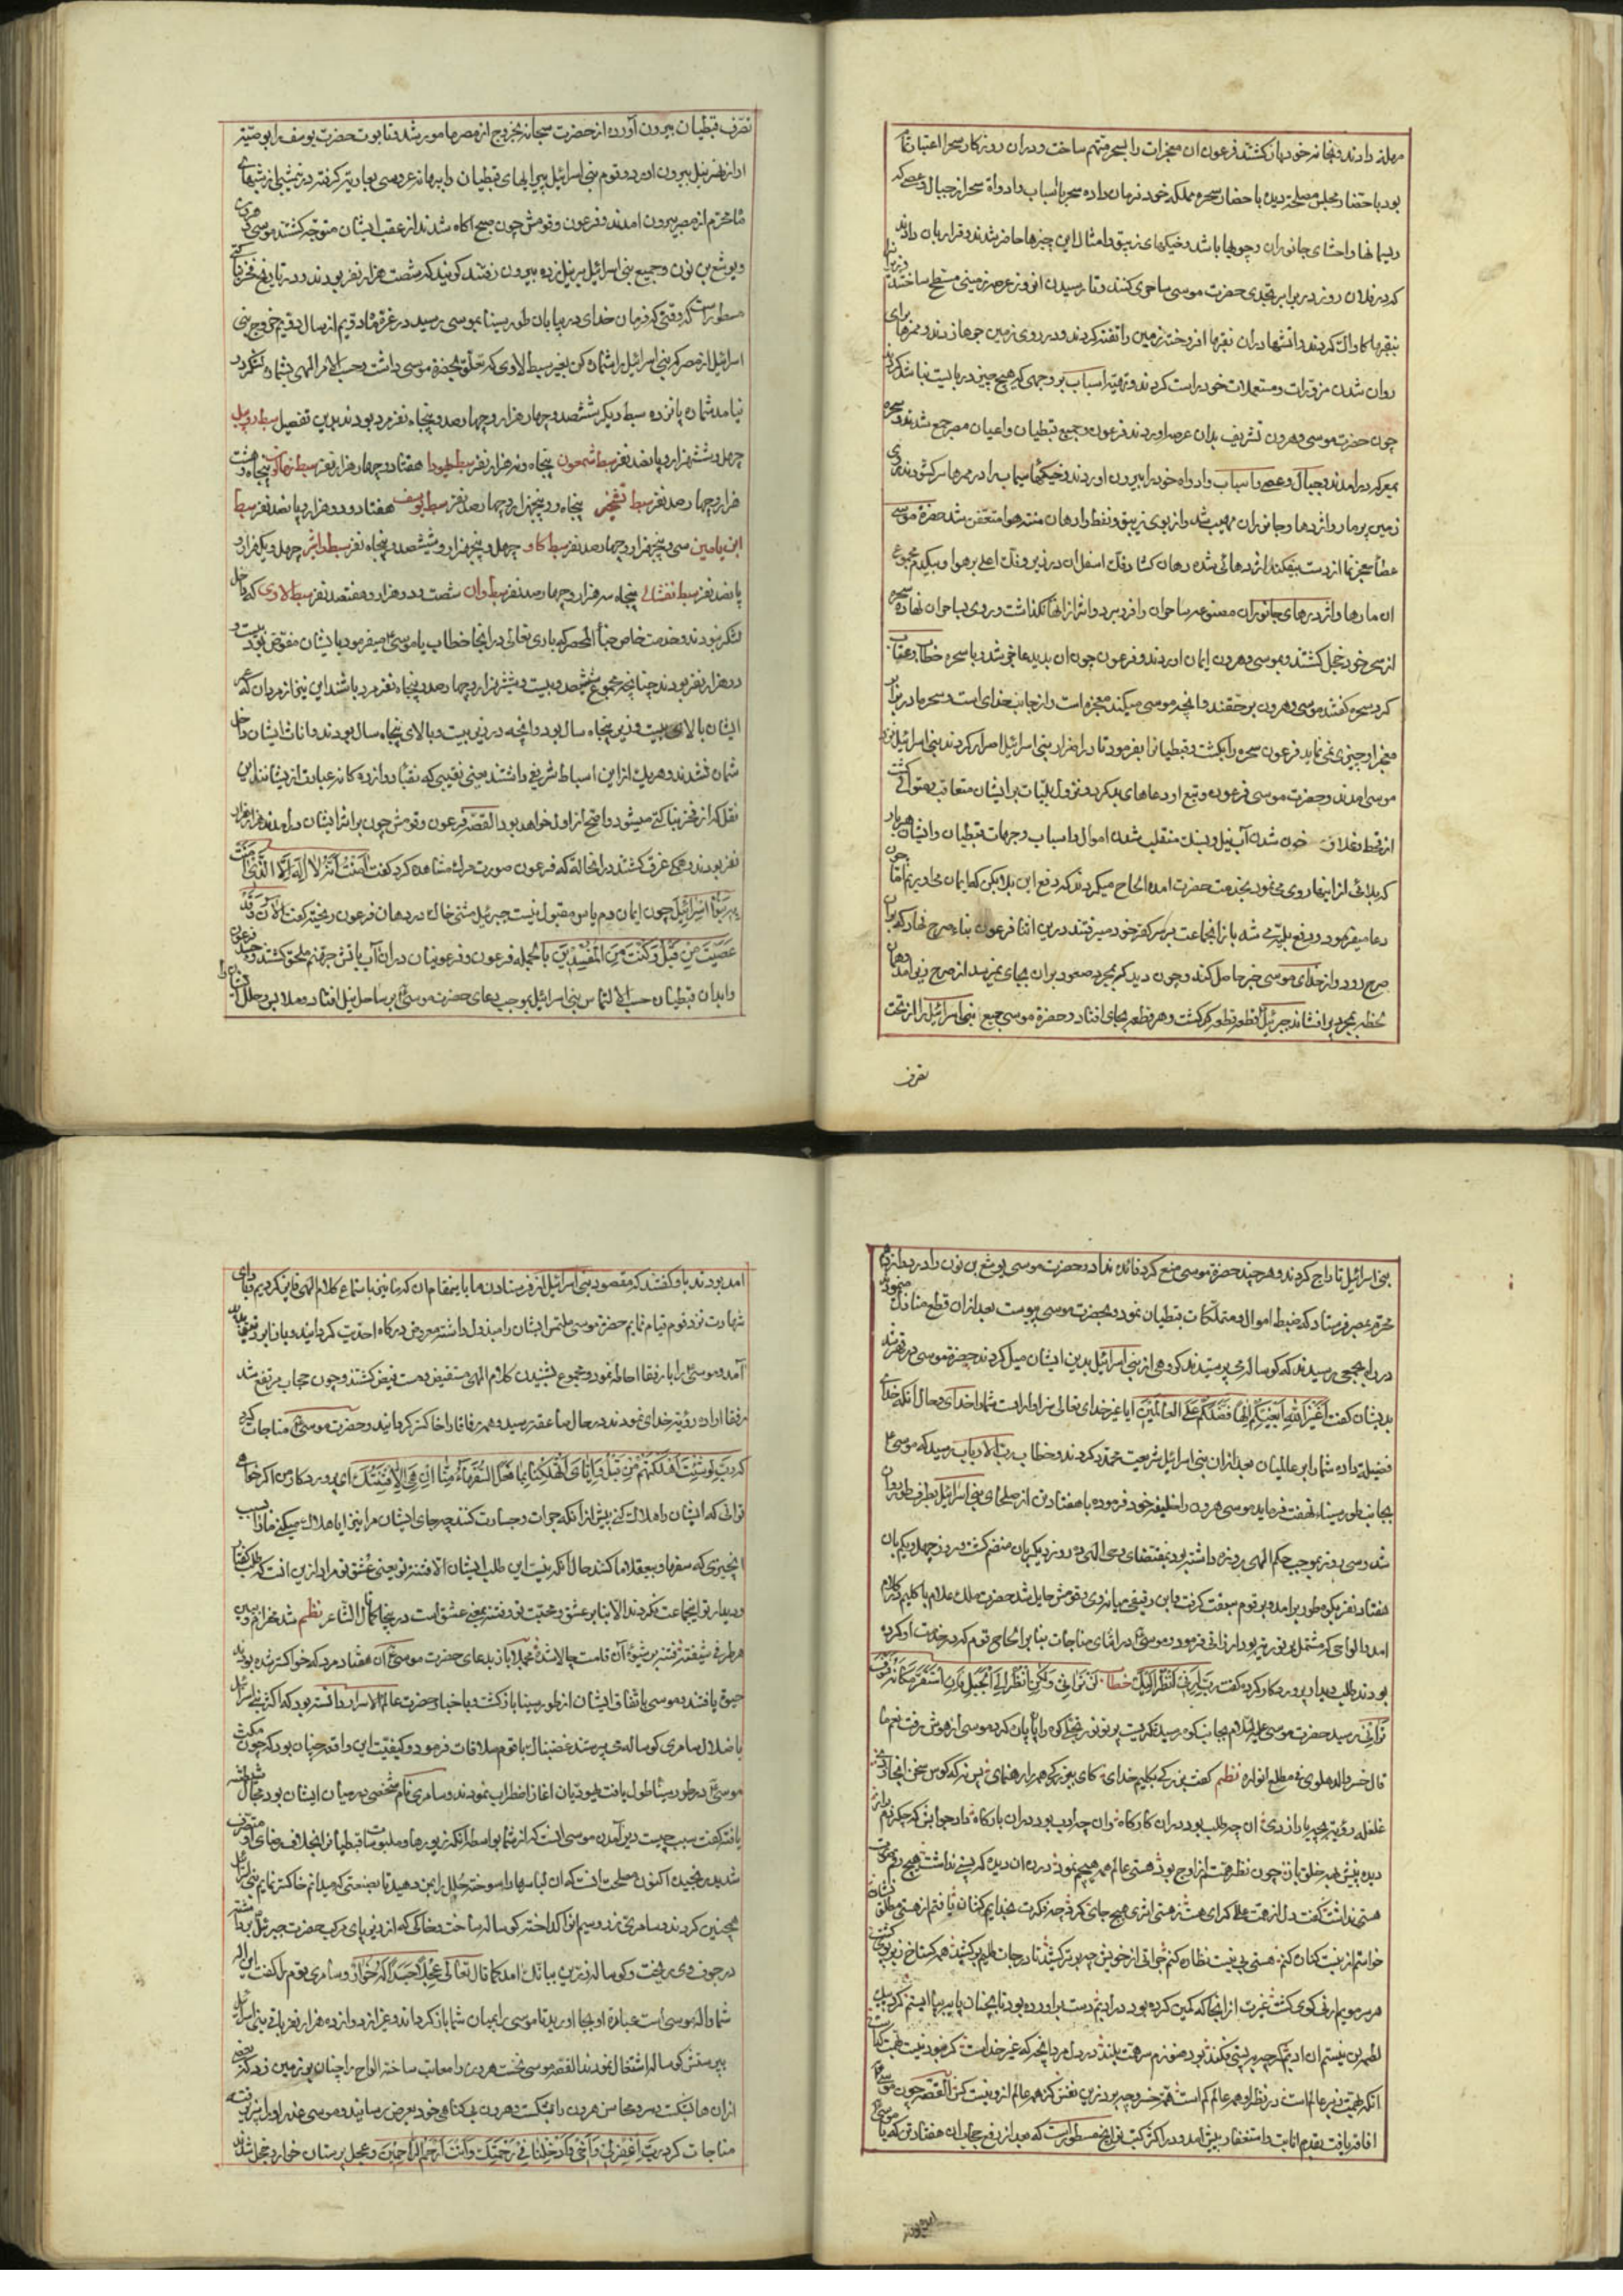 مهلة دادند و بخانه خود باز کشتند فرعون ان معجزات را بسحر متهم ساخت و در ان روزکار سحر را اعتبار تمام
بود باحضار مجلس مصلحة دیدن باحضار سحره مملکه خود فرمان داده سحره با اسباب و ادواة سحر از جبال و عصی که
ریسمانها و احشای جانوران و چوبها باشد و خیکهای زیبق و امثال این چیزها حاضر شدند و قرار بان دادند
که در فلان روز در برابر بتحدی حضرت موسی ساحری کنند و تا رسیدن انروز عرصه زمینی مسطح ساختند
نقبها کاواک کردند و اتشها در ان نقبها افروخته زمین را تفته کردند و در روی زمین جوها زدند و ممرها برای
روان شدن مزورات و مستعملات خود راست کردند و تهیه اسباب بر وجهی که هیچ چیز در بایست نباشد کردند
چون حضرت موسی و هرون تشریف بدان عرصه اوردند فرعون و جمیع قبطیان و اعیان مصر جمع شدند و سحره
بمعرکه در امدند و جبال و عصی و اسباب و ادواه خود را بیرون اوردند و خیکهای سیماب را در ممرها سرکشودند
زمین پر مار و اژدرها و جانوران مهیب شد و از بوی زیبق و نفط و ادهان منتنه هوا متعفن شد حضرة موسی
عصا معجز نما از دست بیفکند اژدهائی شده دهان کشاد فک اسفل ان در زمین و فک اعلی بر هوا و بیکدم مجموع
ان مارها و اژدرهای جانوران مصنوعه ساحران را فرو برد و اثر از انها نکذاشت و روی بساحران نهاده سحره
از سحر خود خجل کشتند و بموسی و هرون ایمان اوردند و فرعون چون ان بدید عاجز شد و با سحره خطاب و عتاب
کرد سحره کفتند موسی و هرون بر حقند و انچه موسی میکند معجزه است و از جانب خدای است و سحر ما در برابر
معجز او چیزی نمی نماید فرعون سحره را بکشت و قبطیانرا بفرمود تا در اضرار بنی اسرائیل اصرار کردند بنی اسرائیل نزد
موسی امدند و حضرت موسی فرعون و تبع او دعاهای بد کرد و نزول بلیات بر ایشان متعاقب و متوالی کشت
از قحط و غلا و خون شدن آب نیل و بسنک منقلب شدن اموال و اسباب و جهات قبطیان و ایشان هر بار
که بلائی از اینها روی می نمود بخدمت حضرت امده الحاح میکردند که دفع این بلا بکن که ایمان می اوریم اما چون
دعا میفرمود و رفع بلیه می شد باز انجماعت بر سر کفر خود میرفتند درین اثنا فرعون بناء صرح نهاد که بران
صرح رود و از خدای موسی خبر حاصل کند و چون دید که بمجرد صعود بر ان بجای نمیرسد از صرح زیر آمد و همان
لحظه بمجرد پر افشاند جبرئیل قطعه قطعه کرکشت و هر قطعه بجای افتاد و حضرة موسی جمیع بنی اسرائیل را از تحت
تصرف
تصرف قبطیان بیرون آورده از حضرت سبحانه بخروج از مصر مامور شد و تابوت حضرت یوسف را بوصیت
او از نهر نیل بیرون اورد و قوم بنی اسرائیل پیرایهای قبطیان را ببهانه عروسی بعاریة کرفته در نیمشبی از شبهای
ماه محرم از مصر بیرون امدند و فرعون و قومش چون صبح آکاه شدند از عقب ایشان متوجه کشتند موسی و هرون
و یوشع بن نون و جمیع بنی اسرائیل بر نیل زده بیرون رفتند کویند که شصت هزار نفر بودند و در تاریخ فخر بناکتی
مسطور است که وقتی که فرمان خدای در بیابان طور سینا بموسی رسید در غره ماه دویم از سال دویم خروج بنی
اسرائیل از مصر که بنی اسرائیل را شماره کن بغیر سبط لاوی که تعلق بحضرة موسی داشت و حسب الامر الهی بشماره لشکر در
نیامد شماره یانزده سبط دیکر ششصد و چهار هزار و چهار صد و پنجاه نفر مرد بودند بدین تفصیل سبط روبیل
چهل و شش هزار و پانصد نفر سبط شمعون پنجاه و نه هزار نفر سبط یهودا هفتاد و چهار هزار نفر سبط زبالون پنجاه و هشت
هزار و چهار صد نفر سبط تشجر پنجاه و پنجهزار و چهار صد نفر سبط یوسف هفتاد و دو هزار و پانصد نفر سبط
ابن یامین سی و پنجهزار و چهار صد نفر سبط کاد چهل و پنجهزار و ششصد و پنجاه نفر سبط واشر چهل و یکهزار و
پانصد نفر سبط نفتالی پنجاه و سه هزار و چهار صد نفر سبط دان شصت و دو هزار و هفتصد نفر سبط لاوی که داخل
لشکر نبودند و خدمت خاص خبأ المحضر که باری تعالی در انجا خطاب با موسی میفرمود بایشان مفوض بود بیست و
دو هزار نفر بودند چنانچه مجموع ششصد و بیست و شش هزار و چهار صد و پنجاه نفر مرد باشند این نیز از مردان که عمر
ایشان بالای بیست و زیر پنجاه سال بود و انچه در زیر بیست و بالای پنجاه سال بودند و اناث ایشان داخل
شمار نشدند و هریک از این اسباط شریفی داشتند یعنی نقیبی که نقبا دوازده کانه عبارة از یشانند این
نقل که از فخر بناکتی میشود واضح از اول خواهد بود القصه فرعون و قومش چون بر اثر ایشان در امدند هزار هزار
نفر بودند همکی غرق کشتند در انحالة که فرعون صورت حرات مشاهده کرد کفت آمَنتُ اَنَّهُ لا اِلهَ اِلَّا الَّذی آمَنَت
بِهِ بَنُوا اِسرائیلَ چون ایمان دم یاس مقبول نیست جبرئیل مشتی خاک در دهان فرعون ریخته کفت الآنَ وَقَد
عَصَیتَ مِن قَبلُ وَکُنتَ مِنَ المُفسِدینَ بالجمله فرعون و فرعونیان در ان آب باتش جهنم ملحق کشتند و جسد فرعون
و ابدان قبطیان حسب الالتماس بنی اسرائیل بموجب دعای حضرت موسی بر ساحل نیل افتاد و ملابس و حلل ایشان را
بنی اسرائیل تاراج کردند و هر چند حضرة موسی منع کرد فائده نداد و حضرت موسی یوشع بن نون را در دوازدهم
محرم بمصر فرستاد که ضبط اموال و متملکات قبطیان نمود و بحضرت موسی پیوست بعد از ان قطع منازل نموده
در راه بجمعی رسیدند که کوساله می پرستیدند کروهی از بنی اسرائیل بدین ایشان میل کردند حضرة موسی در قهر شد
بدیشان کفت اَغَیرَ اللهِ اَبغیکُم اِلهاً فَضَّلَکُم عَلَی العالَمینَ ایا غیر خدای تعالی سزاوار است شما را خدای و حال انکه خدای
فضیلة داده شما را بر عالمیان بعد از ان بنی اسرائیل شریعت مجدد کردند و خطاب رب الارباب رسید که موسی
بجانب طور سیناء نهضت فرماید موسی هرون را خلیفه خود فرموده با هفتاد تن از صلحای بنی اسرائیل بطرف طور روان
شد و سی روز بموجب حکم الهی روزه داشته بود بمقتضای وحی الهی ده روز دیکر بان منضم کشت در روز چهل و یکم بان
هفتاد نفر بکوه طور بر امد و بر قوم سبقت کرفت و ابری رقیقی میان وی و قومش حایل شد حضرت ملک علام با کلیم در کلام
امد و الواحی که مشتمل بر توریه بود ارزانی فرمود و موسی در اثنای مناجات بنا بر الحاح قوم که در خدمت او کرده
بودند طلب دیدار پروردکار کرده کفت رَبِّ اَرِنی اَنظُر اِلَیکَ خطاب لَن تَرانی وَلکِنِ انظُر اِلَی الجَبَلِ فَاِنِ استَقَرَّ مَکانَهُ فَسَوفَ
تَرانی رسید حضرت موسی علیه السلام بجانب کوه رسید نکریست پرتو نور تجلی کوه را پاره پاره کرد و موسی از هوش برفت نعم ما
قال خسرو الدهلوی فی مطلع انواره نظم کفت
علغله رویة
دیده بینش همه خلق باز چون نظر همت از اوج بود هستی عالم همه هیچم نمود
هستی نداشت کفت دل از همت والا کرای
خواستم از نیست کنان کنم هستی بی نیست نظاره کنم
هر سر مویم ارنی کوی کشت غیرت از انجا که کمین کرده بود
لطمه زن نیستم ان
انکه همت زیر عالم است در نظر او همه عالم کم است القصه چون موسی
افاقه یافت بقدم انابت و استغفار پیش آمد و در اکثر کتب تواریخ مسطور است که بعد از رفع حجاب ان هفتاد تن که با موسی
امده بودند باو کفتند که مقصود بنی اسرائیل از فرستادن ما با یمقام ان که ما نیز باستماع کلام الهی فایز کردیم و ادای
شهادت نزد قوم قیام نمایم حضرة موسی ملتمس ایشان را مبذول داشته معروض درکاه احدیت کردانید و باز ابر رقیق پدید
آمد و موسی را با رفقا احاطه نمود و مجموع بشنیدن کلام الهی مستفیض و مست فیض کشتند و چون حجاب مرتفع شد
رفقا اراده رؤیة خدای نمودند در حال صاعقه رسید و همه رفقا را خاکستر کردانید و حضرت موسی مناجات کرد
که رَبِّ لَو شِئتَ اَهلَکتَهُم مِن قَبلُ وَاِیّایَ اَتُهلِکُنا بِما فَعَلَ السُّفَهاءُ مِنّا اِن هِیَ اِلّا فِتنَتُکَ ای پروردکار من اکر خواهی
توانی که ایشان را هلاک کنی پیش از انکه جرات و جسارت کنند چه جای ایشان مرا نیز ایا هلاک میکنی ما را بسبب
انچیزی که سفها و بیعقلان ما کنند حال انکه نیست این طلب ایشان الا فتنه تو یعنی عشق تو مراد ازین انست که طلب لقا
و دیدار تو اینجماعت نکردند الا بنا بر عشق و محبت تو و فتنه بمعنی عشق است در ینجا کما قال الشاعر نظم
هر طرفی شیفته فتنه بر شیوهٔ آن قامت چالاک شده مجملا باز بدعای حضرت موسی ان هفتاد مرد که خواکستر شده بودند
حیوة یافتند و موسی باتفاق ایشان از طور سینا باز کشت و باخبار حضرت عالم الاسرار دانسته بود که اکثر بنی اسرائیل
باضلال سامری کوساله می پرستند غضبناک با قوم ملاقات فرمود و کیفیت این واقعه چنان بود که چون مکث
موسی در طور سینا طول یافت یهودیان اغاز اضطراب نمودند و سامری نام شخصی در میان ایشان بود مجال
یافته کفت سبب چیست دیر آمدن موسی انست که از شما بواسطه انکه زیورها و ملبوسات قبطیان را بخلاف رضای او متصرف
شدید رنجیده اکنون مصلحت انست که ان لباسها را سوخته حلل را بمن دهید تا بصنعتی که میدانم خاکستر نمایم بنی اسرائیل
همچنین کردند و سامری زر و سیم انرا کداخته کوساله ساخت و خاکی که از زیر پای مرکب حضرت جبرئیل برداشته
در جوف وی ریخت و کوساله زرین ببانک امد کما قال تعالی عِجلاً جَسَداً لَهُ خُوارٌ و سامری بقوم کفت این اله
شما و اله موسی است عبادة او بجا اورید تا موسی را بمیان شما باز کرداند و غیر از دوازده هزار نفر باقی بنی اسرائیل
بپرستش کوساله اشتغال نمودند القصه موسی نخست هرون را معاتب ساخته الواح را چنان بر زمین زد که بعضی
از ان ها بشکست و سر و محاسن هرون را بکشید و هرون بیکناهی خود بعرض رسانید و موسی عذر او را پذیرفته
مناجات کرد رَبِّ اغفِر لی وَلِاَخی وَاَدخِلنا فی رَحمَتِکَ وَاَنتَ اَرحَمُ الرّاحِمینَ و عجل پرستان خوار و خجل شدند